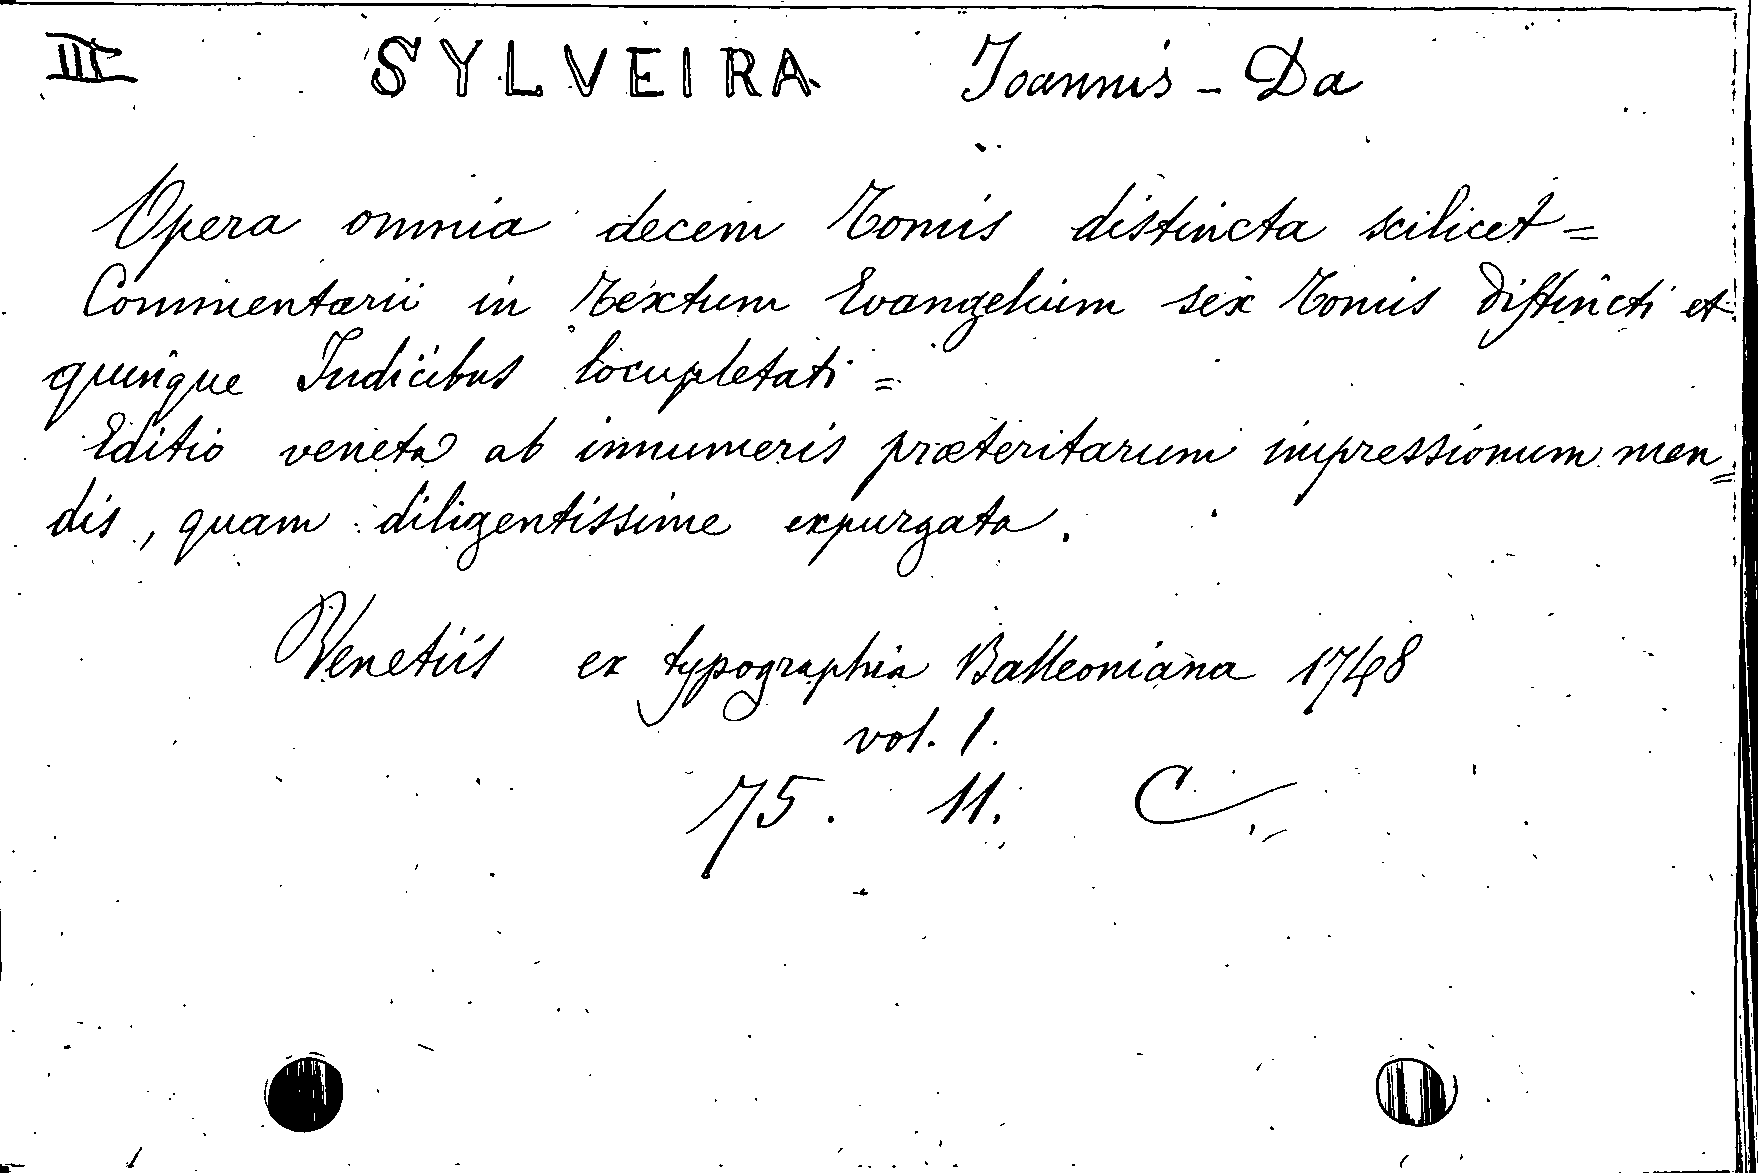 III SYLVEIRA Joannis - Da
Opera omnia decem Tomis distincta scilicet =
Commentarii in Textum Evangelium sex Tomis distincti et
quinque Indicibus locupletati =
Editio veneta ab innumeris præteritarum impressionum men=
dis, quam diligentissime expurgata.
Venetiis ex typographia Balleoniana 1748
vol. 1.
75. 11. C